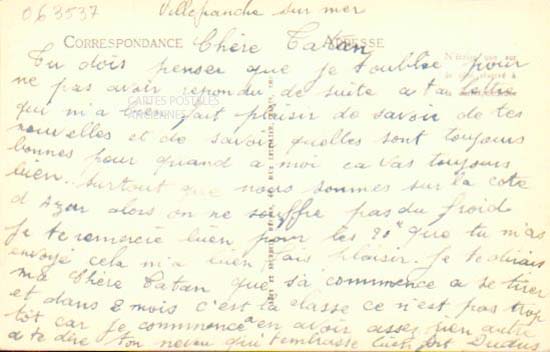 063537
Villefranche sur mer
CORRESPONDANCE
ADRESSE
Chère Tatan
Tu dois penser que je t'oublie pour
ne pas avoir repondu de suite a ta lettre
qui m'a bien fait plaisir de savoir de tes
nouvelles et de savoir quelles sont toujours
bonnes pour quand a moi ca vas toujours
bien. surtout que nous sommes sur la cote
d Azur alors on ne souffre pas du froid
je te remercie bien pour les que tu m'as
envoyé cela m'a bien fais plaisir. Je te dirais
ma Chère Tatan que sa commence a se tirer
et dans 2 mois c'est la classe ce n'est pas trop
tôt car je commence a en avoir assez rien autre
a te dire ton neveu qui t'embrasse bien fort
CARTES POSTALES
ANCIENNES